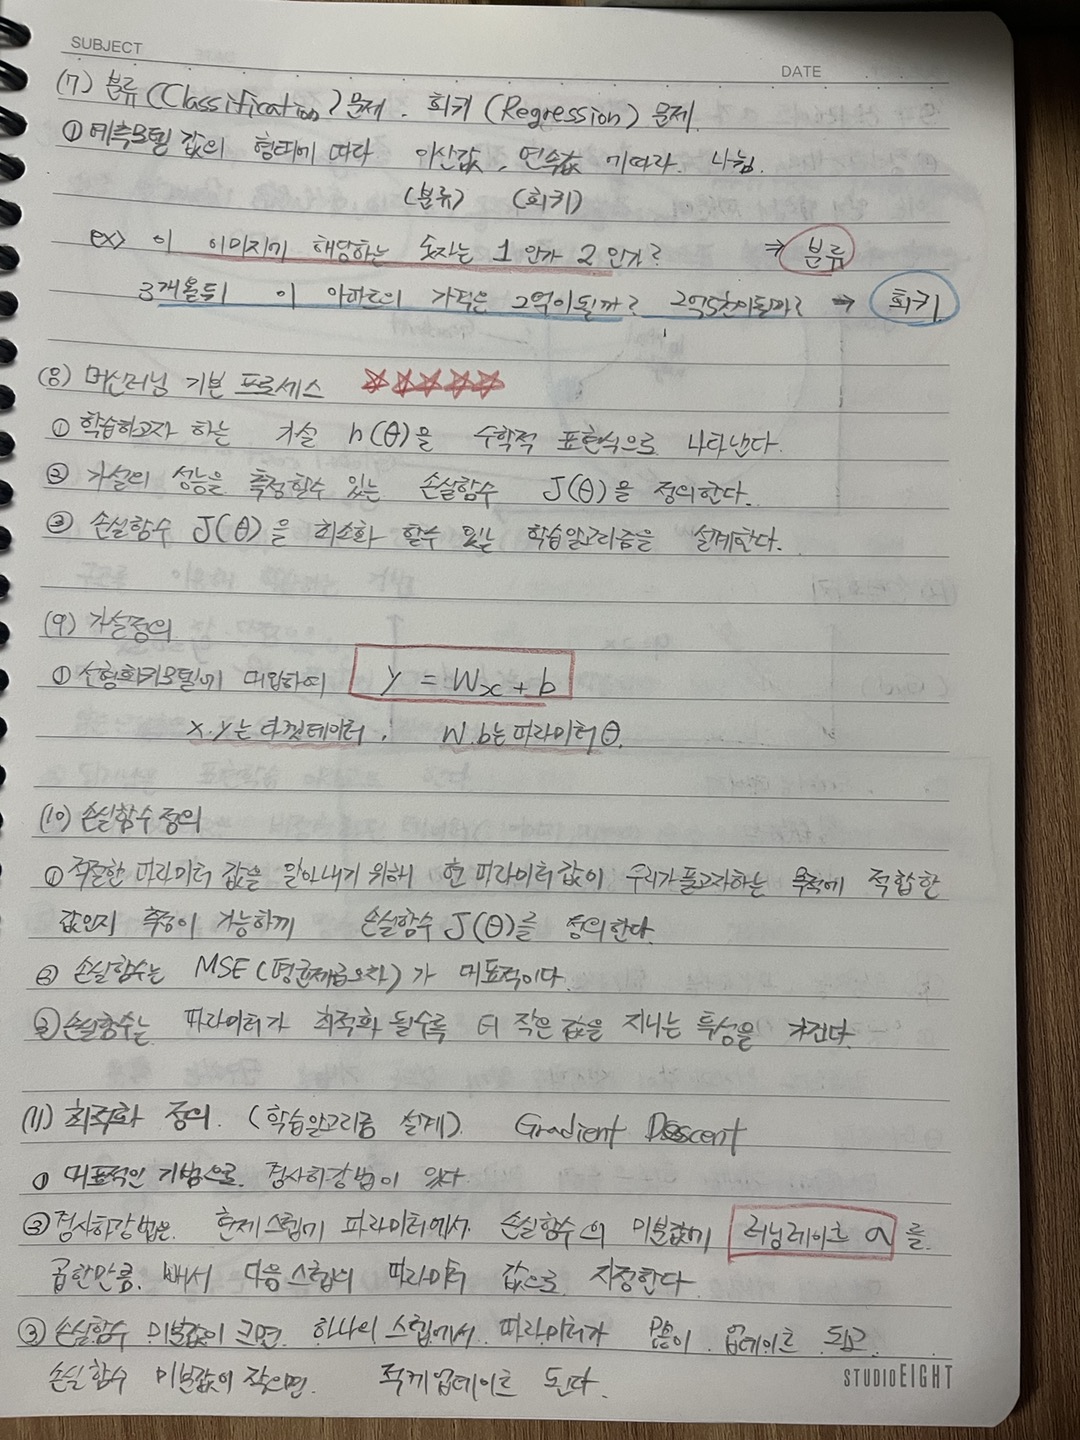 SUBJECT
DATE
(7) 분류(Classification)문제. 회귀(Regression)문제.
① 예측모델 값의 형태에 따라 이산값, 연속값에 따라 나뉨.
(분류) (회귀)
ex) 이 이미지가 해당하는 숫자는 1인가 2인가? ⇒ 분류
3개월뒤 이 아파트의 가격은 2억이될까? 2억5천이될까? → 회귀
(8) 머신러닝 기본 프로세스 ☆☆☆☆☆
① 학습하고자 하는 가설 h(θ)을 수학적 표현식으로 나타낸다.
② 가설의 성능을 측정할수 있는 손실함수 J(θ)을 정의한다.
③ 손실함수 J(θ)을 최소화 할수 있는 학습알고리즘을 설계한다.
(9) 가설정의
① 선형회귀모델에 대입하여 y = Wx + b
x.y는 타겟데이터, W.b는 파라미터 θ.
(10) 손실함수 정의
① 적절한 파라미터 값을 알아내기 위해 현 파라미터값이 우리가풀고자하는 목적에 적합한
값인지 측정이 가능하게 손실함수 J(θ)를 정의한다.
② 손실함수는 MSE(평균제곱오차)가 대표적이다.
③ 손실함수는 파라미터가 최적화 될수록 더 작은 값을 지니는 특성을 가진다.
(11) 최적화 정의. (학습알고리즘 설계). Gradient Descent
① 대표적인 기법으로. 경사하강법이 있다.
② 경사하강법은. 현재스텝의 파라미터에서 손실함수의 미분값에 러닝레이트 α를
곱한만큼. 빼서 다음스텝의 파라미터 값으로 지정한다.
③ 손실함수 미분값이 크면. 하나의 스텝에서 파라미터가 많이 업데이트 되고.
손실함수 미분값이 작으면. 적게업데이트 된다.
STUDIOEIGHT